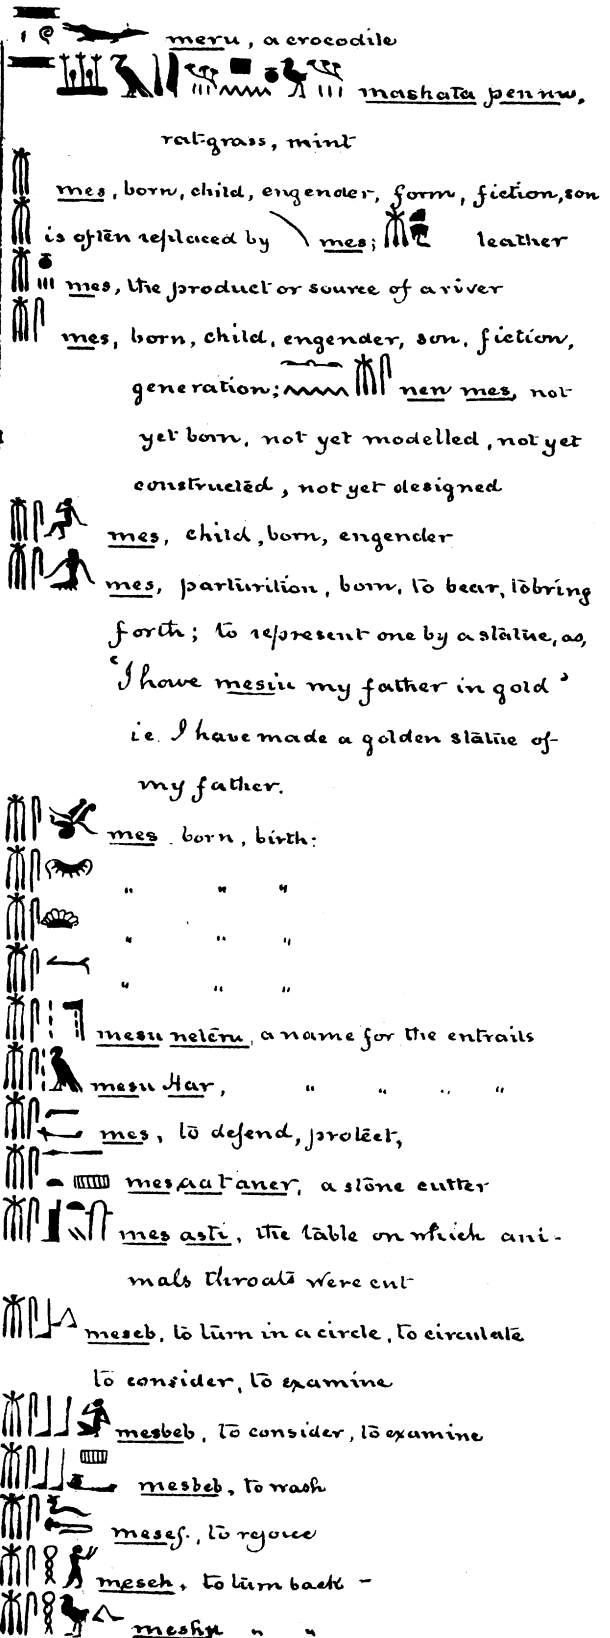 meru, a crocodile
mashata pennu,
rat-grass, mint
mes, born, child, engender, form, fiction, son
is often replaced by \ mes; leather
mes, the product or source of a river
mes, born, child, engender, son, fiction,
generation; nen mes, not
yet born, not yet modelled, not yet
constructed, not yet designed
mes, child, born, engender
mes, parturition, born, to bear, to bring
forth; to represent one by a statue, as,
'I have mesiu my father in gold'
i.e. I have made a golden statue of
my father.
mes. born, birth:
" " "
" " "
" " "
mesu neteru, a name for the entrails
mesu Har, " " " "
mes, to defend, protect,
mes aat aner, a stone cutter
mes asti, the table on which ani-
mals throats were cut
meseb, to turn in a circle, to circulate
to consider, to examine
mesbeb, to consider, to examine
mesbeb, to wash
mesef, to rejoice
meseh, to turn back –
" "